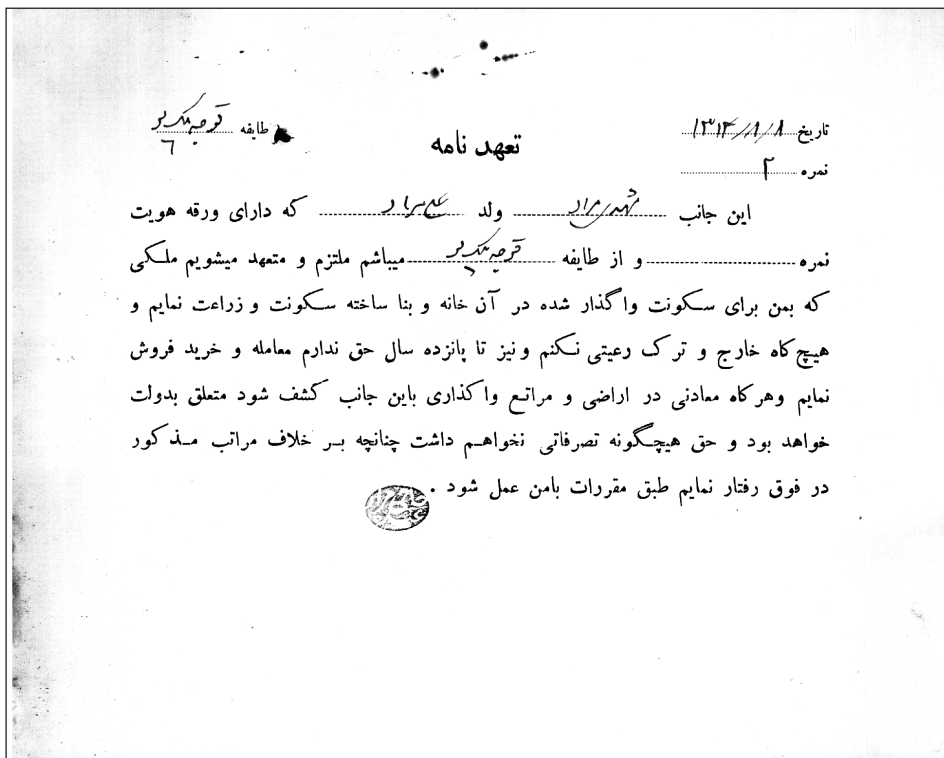 تاریخ ۱۳۱۴/۸/۸
طایفه
نمره ۲
تعهد نامه
این جانب ولد که دارای ورقه هویت
نمره و از طایفه میباشم ملتزم و متعهد میشویم ملکی
که بمن برای سکونت واگذار شده در آن خانه و بنا ساخته سکونت و زراعت نمایم و
هیچ کاه خارج و ترک رعیتی نکنم و نیز تا پانزده سال حق ندارم معامله و خرید فروش
نمایم وهرکاه معادنی در اراضی و مراتع واکذاری باین جانب کشف شود متعلق بدولت
خواهد بود و حق هیچگونه تصرفاتی نخواهم داشت چنانچه بر خلاف مراتب مذکور
در فوق رفتار نمایم طبق مقررات بامن عمل شود .